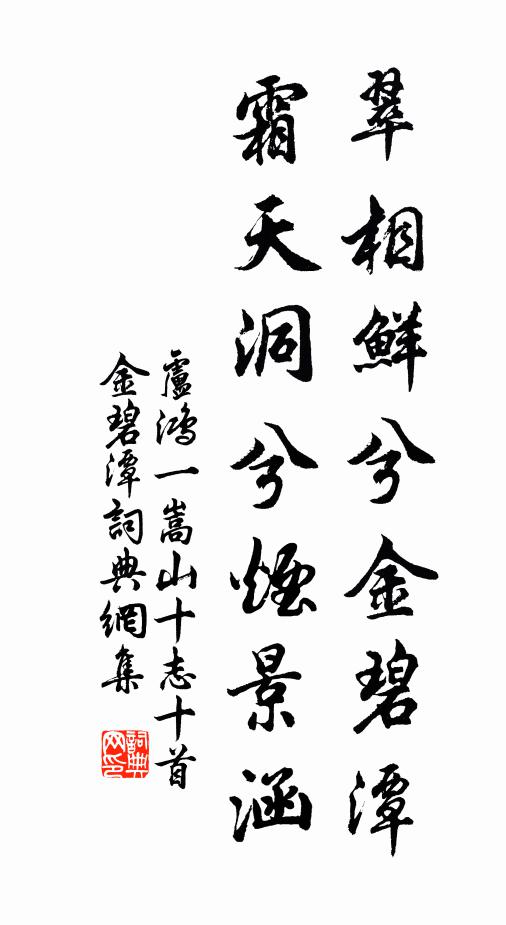 翠相鮮兮金碧潭
霜天洞兮煙景涵
盧鴻一嵩山十志十首
金碧潭詞典網集
詞典
网印